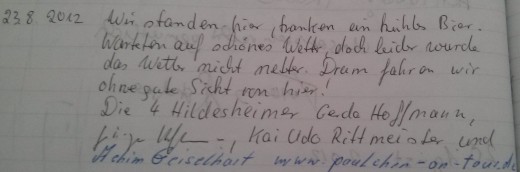 23.8.2012 Wir standen hier, tranken ein kühles Bier.
Warteten auf schönes Wetter, doch leider wurde
das Wetter nicht netter. Drum fahren wir
ohne gute Sicht von hier!
Die 4 Hildesheimer Gerda Hoffmann,
Kai Udo Rittmeister und
Achim Geiselhart www.paulchen-on-tour.de